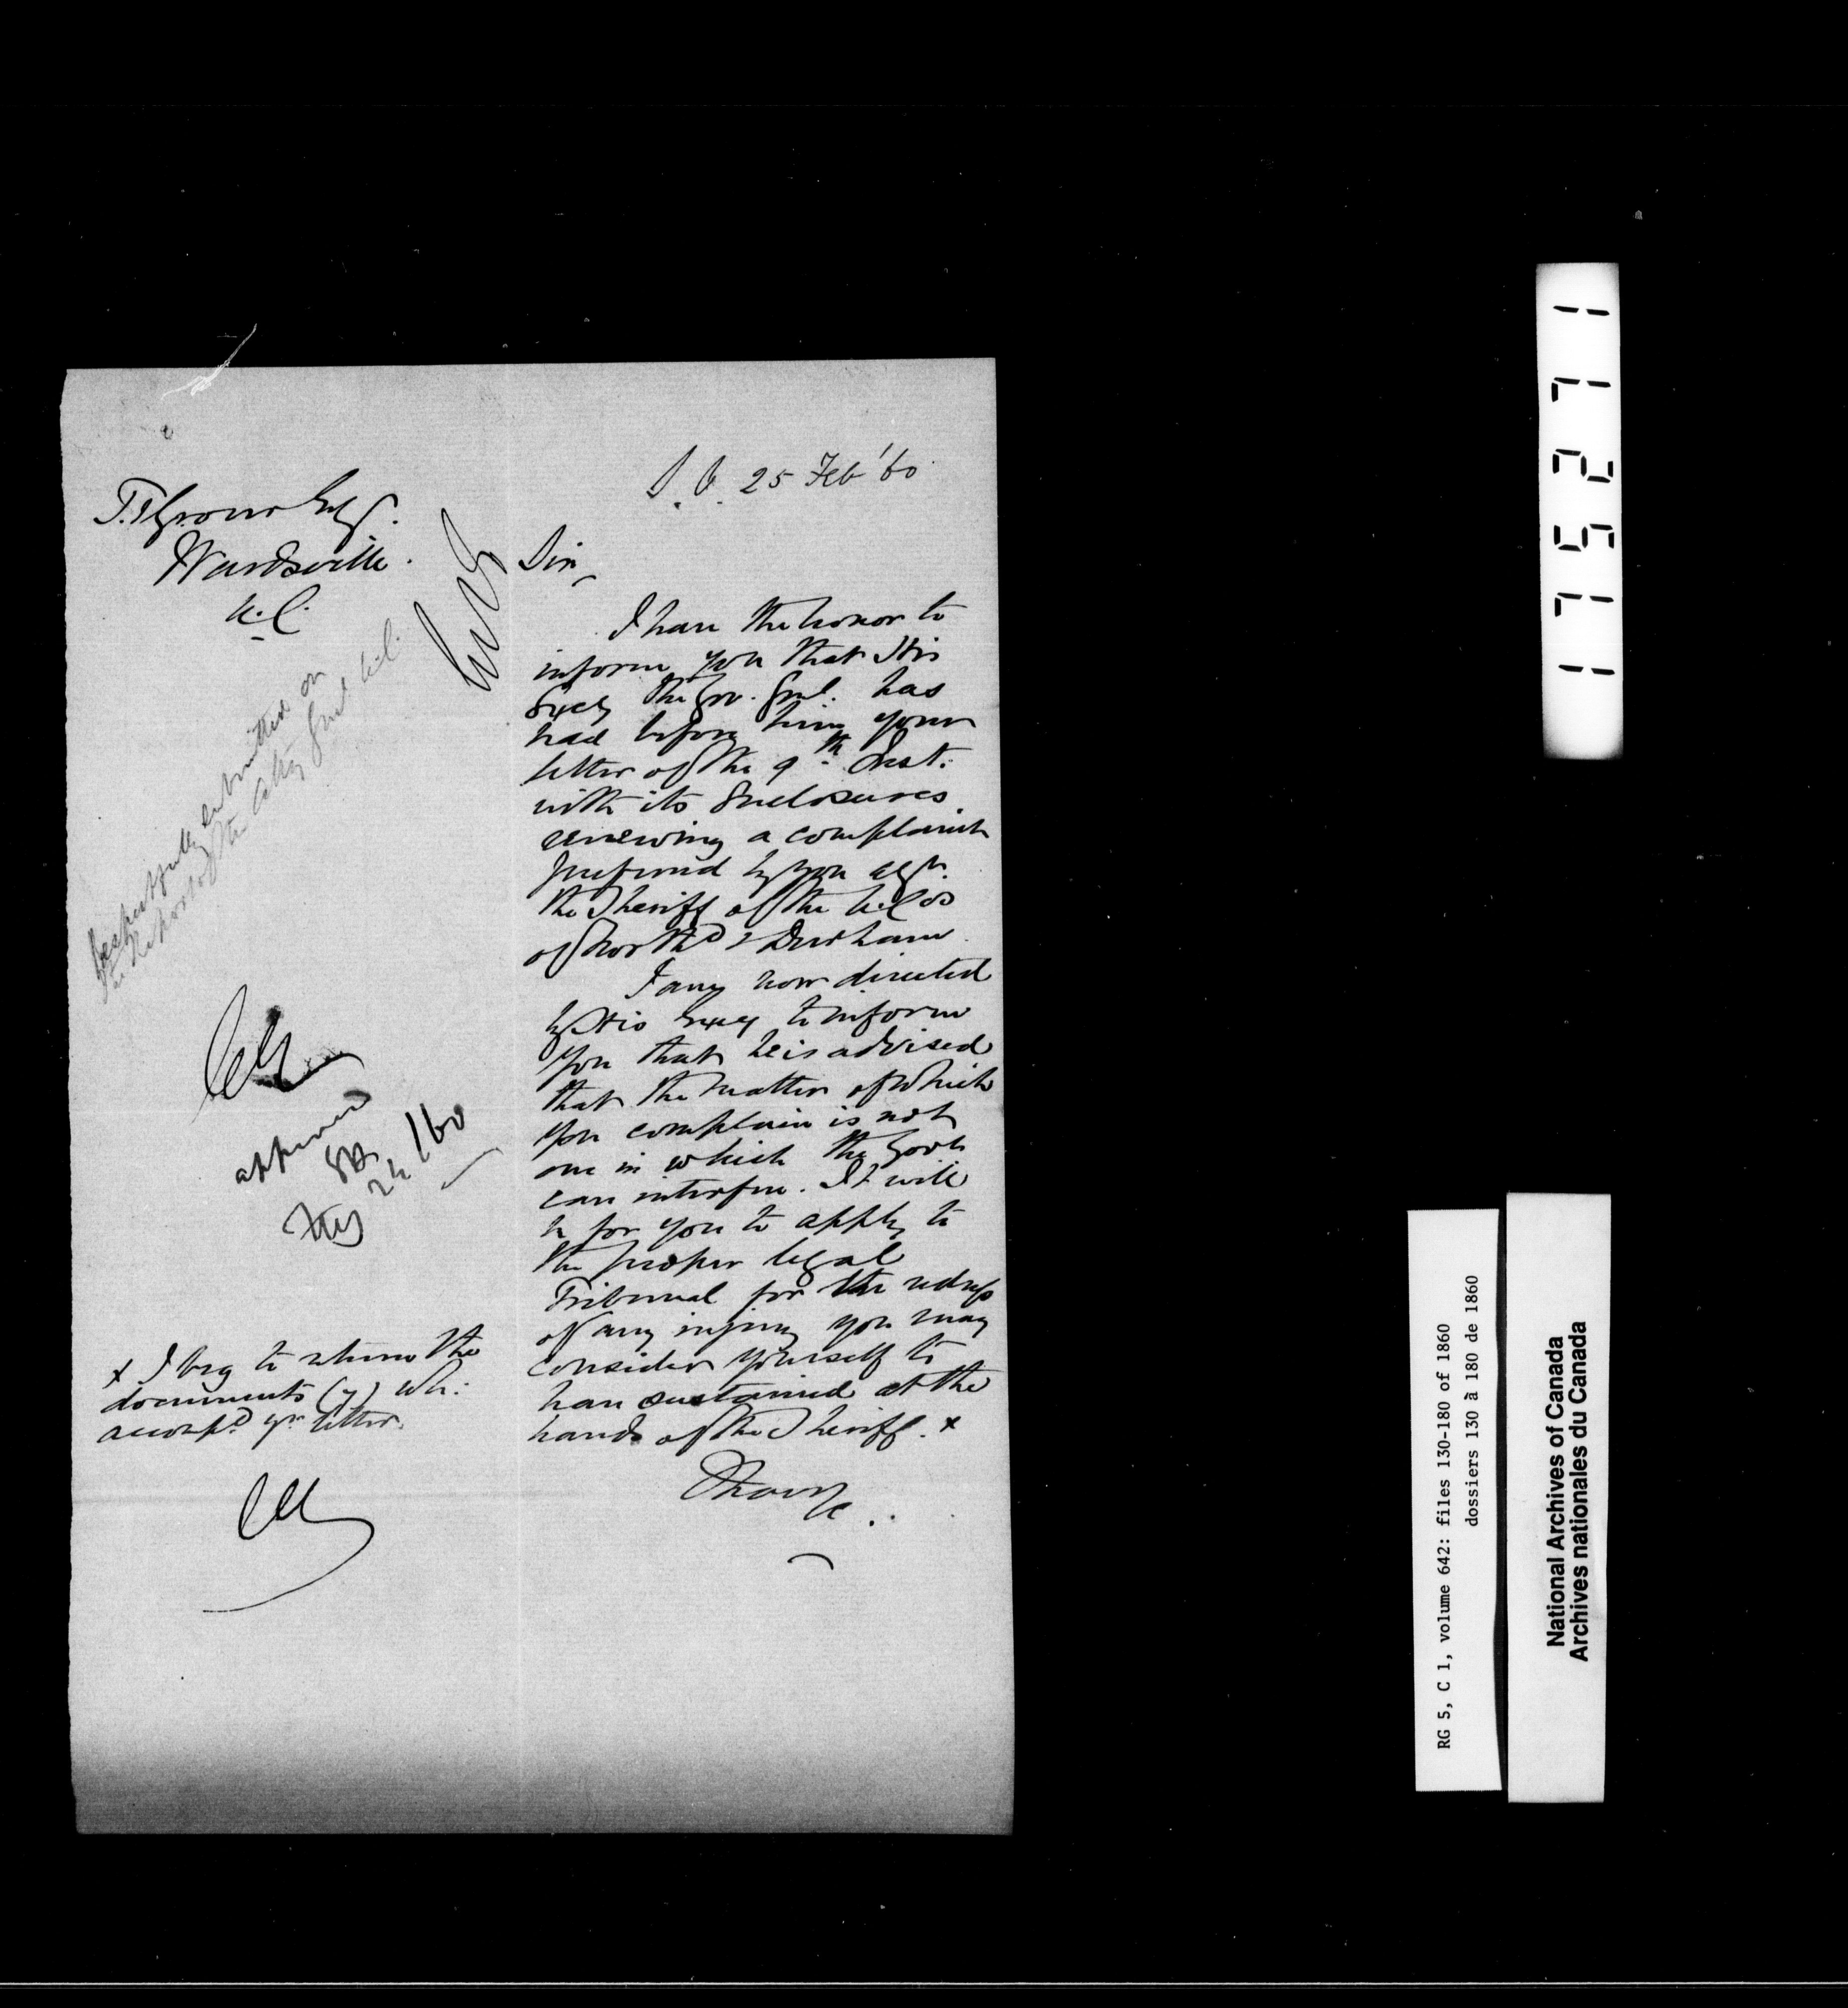 S. O. 25 Feb '60
Esq.
Wardsville.
U.C.
Sir,
I have the honor to
inform you that His
Excy the Gov. Genl. has
had before him your
letter of the 9th Inst.
with its Enclosures
renewing a complaint
preferred by you agt.
the Sheriff of the U. Cos
of North'd & Durham.
I am now directed
by His Excy to inform
you that he is advised
that the matter of which
you complain is not
one in which the Govt
can interfere. It will
be for you to apply to
the proper legal
Tribunal for the redress
of any injury you may
consider yourself to
have sustained at the
hands of the Sheriff. x
I have
&c.
Respectfully submitted on
the Report of the Atty Genl U.C.
approved
24/60
x I beg to return the
documents (7) wh:
accomp'd yr letter.
175271
RG 5, C 1, volume 642: files 130-180 of 1860
dossiers 130 à 180 de 1860
National Archives of Canada
Archives nationales du Canada